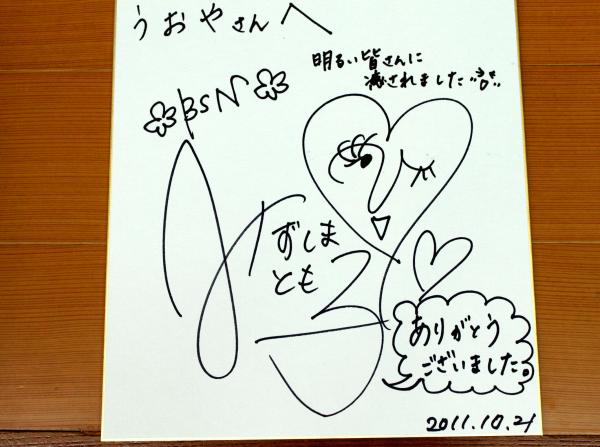 うおやさんへ
明るい皆さんに
癒されました
BSN
ずしま
とも
ありがとう
ございました。
2011.10.21